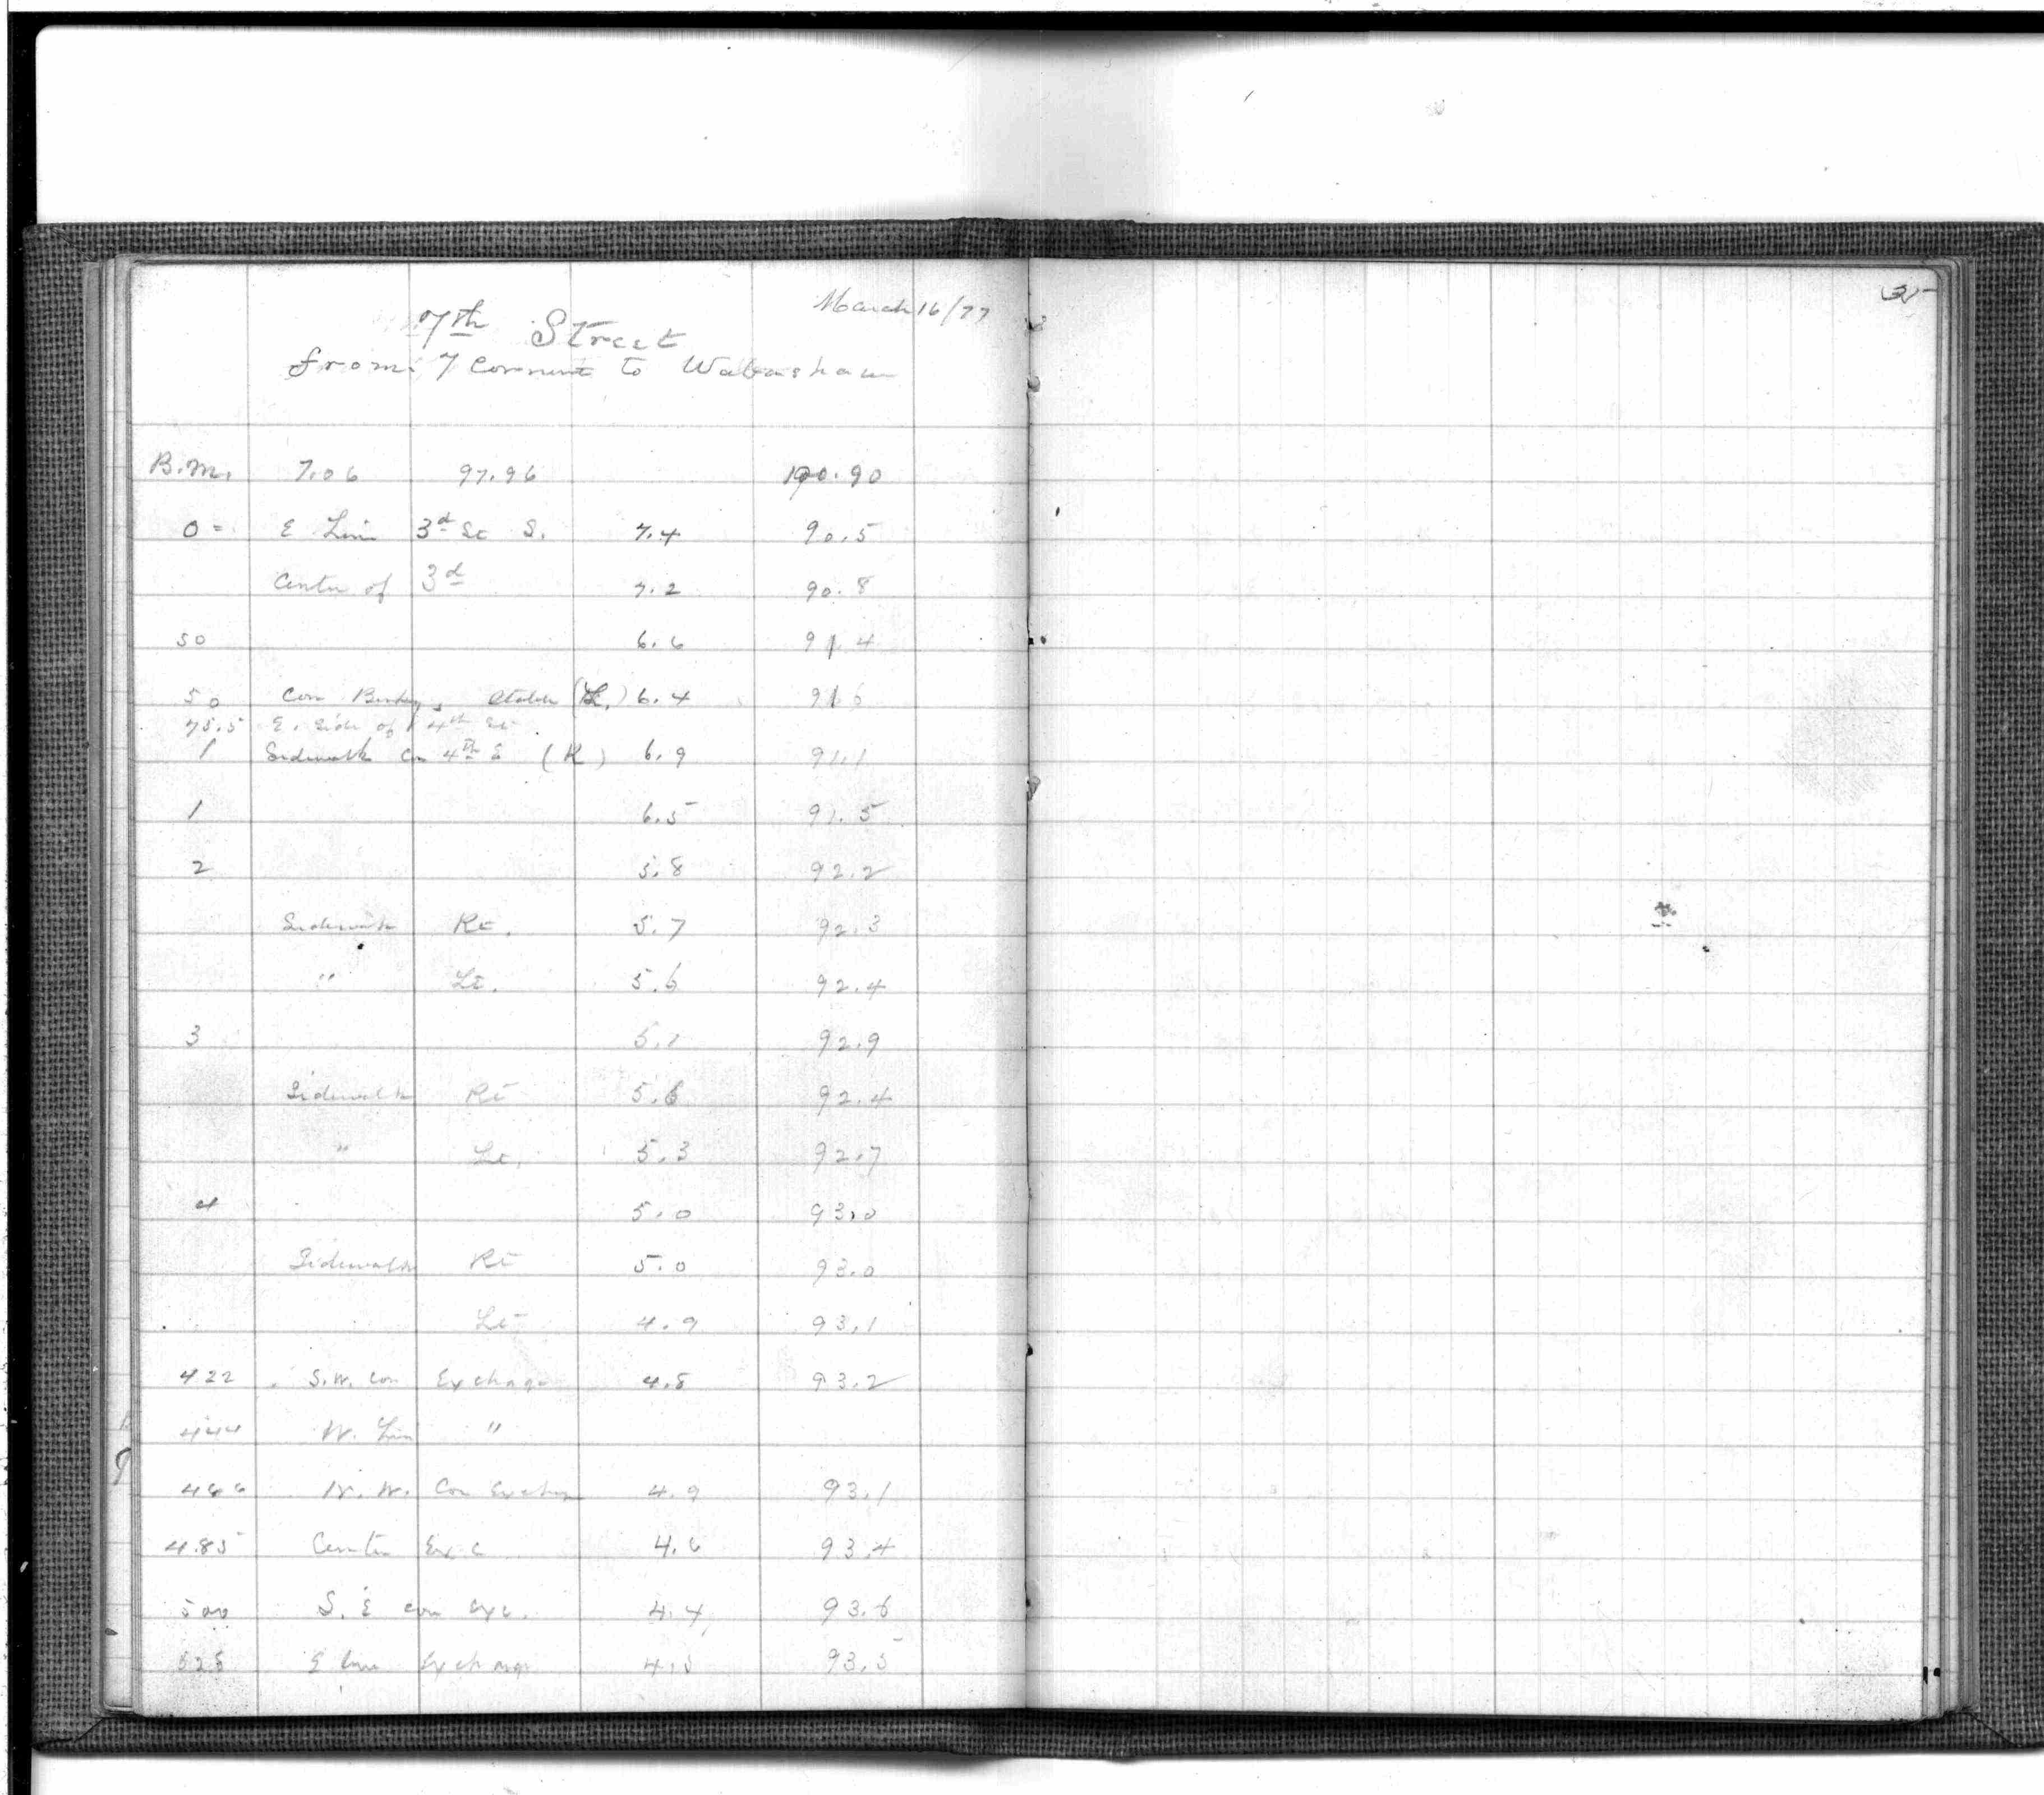 March 16/77
7th Street
from 7 Corners to Wabashaw
B.M. 7.06 97.96 90.90
0 = E Line 3d St S. 7.4 90.5
Center of 3d 7.2 90.8
50 6.6 91.4
50 Cor (Lt.) 6.4 91.6
75.5 E. Side of 4th St
1 Sidewalk Cor 4th E (R) 6.9 91.1
1 6.5 91.5
2 5.8 92.2
Sidewalk Rt. 5.7 92.3
" Lt. 5.6 92.4
3 5.1 92.9
Sidewalk Rt 5.6 92.4
" Lt. 5.3 92.7
4 5.0 93.0
Sidewalk Rt 5.0 93.0
Lt 4.9 93.1
422 S.W. Cor Exchange 4.8 93.2
444 W. Line "
466 N.W. Cor Exchan 4.9 93.1
485 Center Exc 4.6 93.4
500 S. E cor exc. 4.4 93.6
528 E line Exchange 4.5 93.5